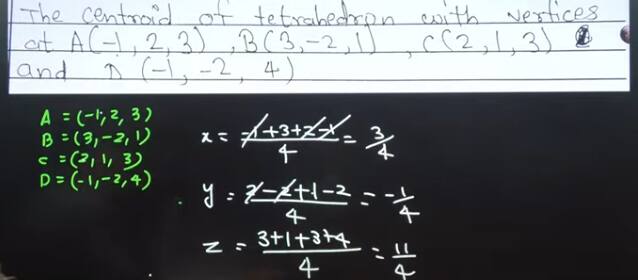 The centroid of tetrahedron with vertices
at A(-1, 2, 3) , B(3, -2, 1) , C(2, 1, 3)
and D (-1, -2, 4)
A = (-1, 2, 3)
B = (3, -2, 1)
C = (2, 1, 3)
D = (-1, -2, 4)
x = -1+3+2-1/4 = 3/4
y = 2-2+1-2/4 = -1/4
z = 3+1+3+4/4 = 11/4